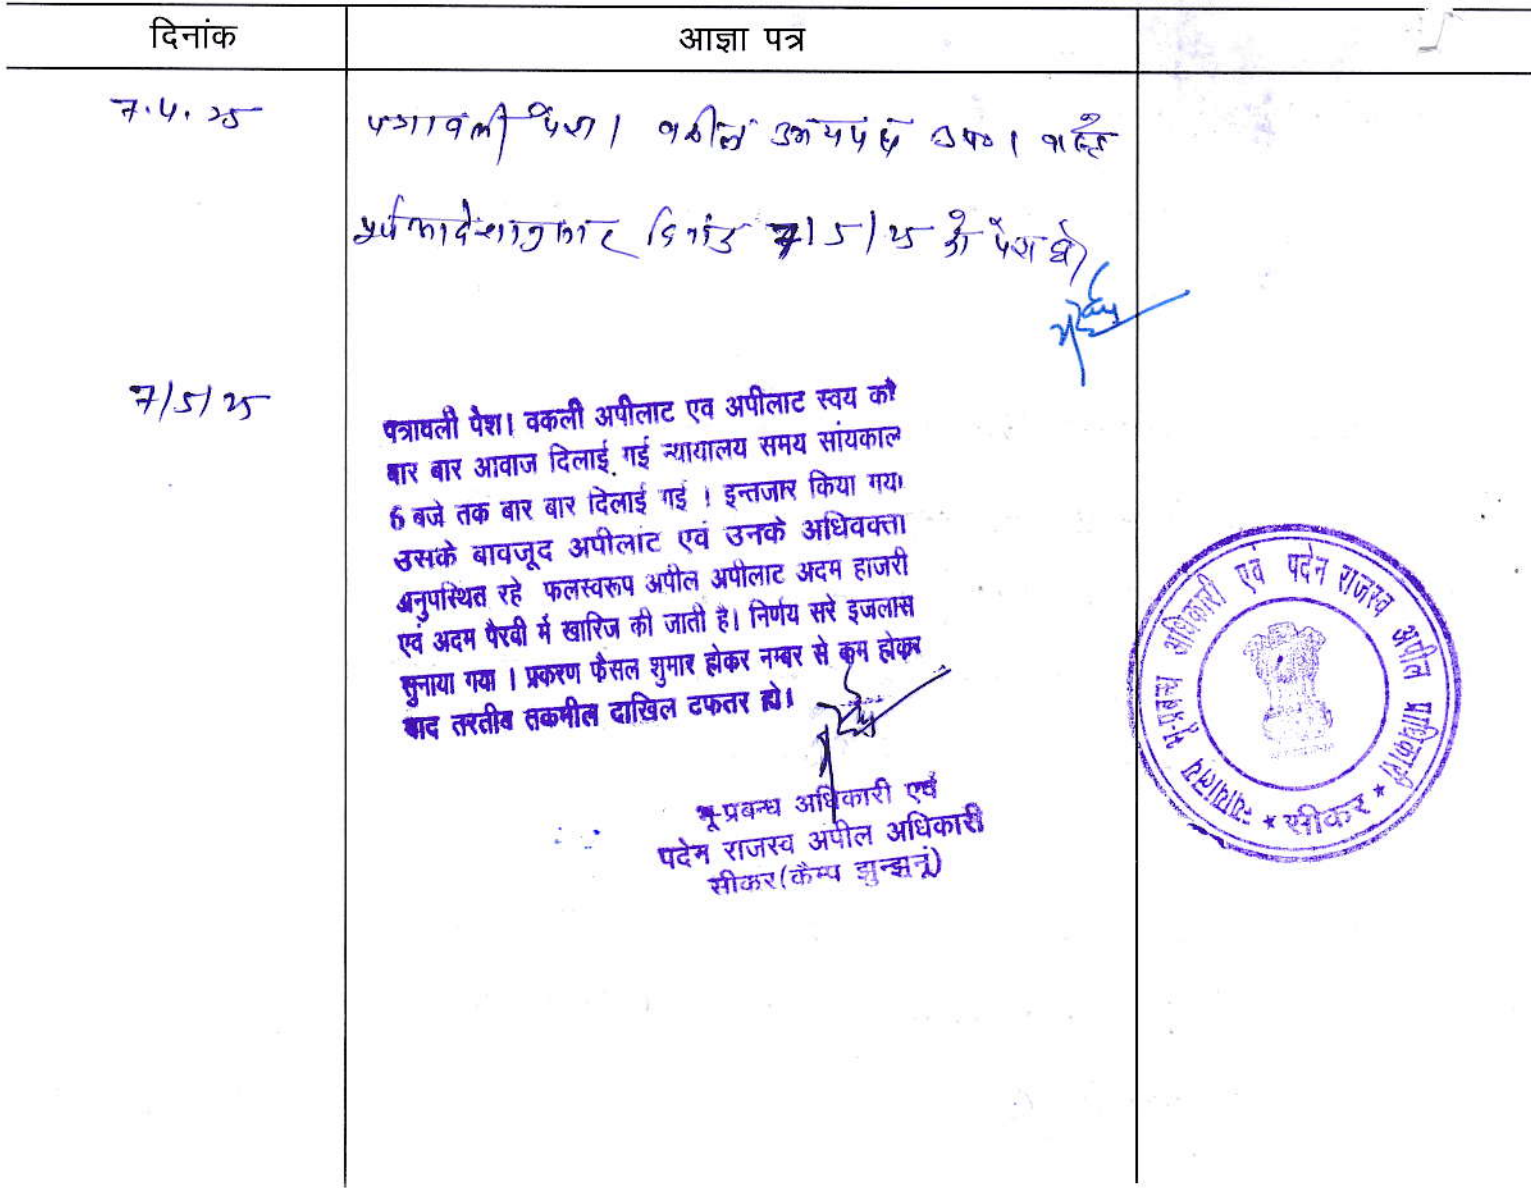 दिनांक
आज्ञा पत्र
7.4.25
पत्रावली पेश। वकील उभयपक्ष उप०। वास्ते
पूर्व आदेशानुसार दिनांक 7/5/25 को पेश हो
7/5/25
पत्रावली पेश। वकली अपीलाट एव अपीलाट स्वय को
बार बार आवाज दिलाई गई न्यायालय समय सांयकाल
6 बजे तक बार बार दिलाई गई । इन्तजार किया गया
उसके बावजूद अपीलांट एवं उनके अधिवक्ता
अनुपस्थित रहे फलस्वरूप अपील अपीलाट अदम हाजरी
एवं अदम पैरवी में खारिज की जाती है। निर्णय सरे इजलास
सुनाया गया । प्रकरण फैसल शुमार होकर नम्बर से कम होकर
बाद तरतीब तकमील दाखिल दफतर हो।
भू-प्रबन्ध अधिकारी एवं
पदेन राजस्व अपील अधिकारी
सीकर(कैम्प झुन्झुनूं)
न्यायालय भू-प्रबन्ध अधिकारी एवं पदेन राजस्व अपील प्राधिकारी
* सीकर *